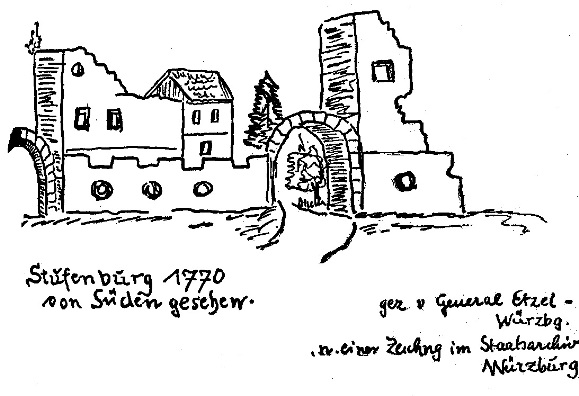 Stufenburg 1770
von Süden gesehen.
gez v General Etzel -
Würzbg.
. n. einer Zeichng im Staatsarchiv
Würzburg